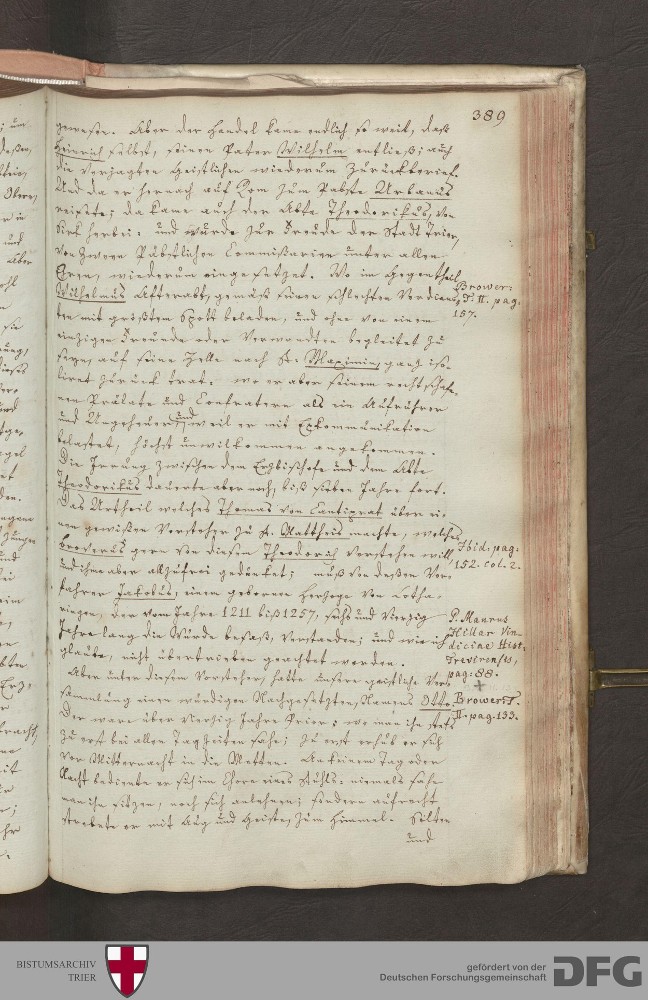 389
gewesen. Aber der Handel kame endlich so weit, daß
Heinrich selbst, seinen Pater Wilhelm entließ; auch
die verjagten Geistlichen wiederum zurückberief.
Und da er hernach auf Rom zum Pabste Urbanus
reisete; da kame auch der Abte Theodorikus, von
Sirk herbei: und wurde zur Freude der Stadt Trier,
von zween Päbstlichen Commissarien unter allen
Eren, wiederum eingesetzet. Wo im Gegentheil
Wilhelmus Afterabt, gemäß seinen schlechten Verdiens,
ten mit größtem Spott beladen, und ohne von einem
einzigen Freunde oder Verwandten begleitet zu
seyn, auf seine Zelle nach St. Maximin, ganz iso,
liret zurück trat: wo er aber seinem rechtschafe,
nen Prälate und Confratern als ein Aufrührer
und Ungeheuer, und weil er mit Exkommunikation
belastet, höchst unwilkommen angekommen.
Die Irrung zwischen dem Erzbischofe und dem Abte
Theodorikus dauerte aber noch, biß sieben Jahre fort.
Das Urtheil welches Thomas von Cantiprat über ei,
nen gewißen Vorsteher zu St. Mattheis machte, welches
Broverus gern von diesem Theodorich verstehen will
und ihme aber allzufrei gedünket; muß von deßen Vor,
fahrer Jakobus, einem gebornen Herzoge von Lotha,
ringen, der vom Jahre 1211 biß 1257, sechs und vierzig
Jahre lang die Würde besaß, verstanden; und wie ich
glaube, nicht übertrieben geachtet werden.
Aber unter diesem Vorsteher, hatte unsere geistliche Vers,
sammlung einen würdigen Nachgesetzten, Namens Otto.
Der ware über vierzig Jahre Prior: wo man ihn stets
zu erst bei allen Tagzeiten sahe; zu erst erhub er sich
vor Mitternacht in die Metten. An keinem Tag oder
Nacht bediente er sich im Chore eines Stuhls: niemals sahe
man ihn sitzen, noch sich anlehnen; sondern aufrecht
strebete er mit Aug und Geiste, zum Himmel. Selten
und
Brower:
T. II. pag.
157.
Ibid. pag.
152. col. 2.
P. Maurus
Hillar Vin,
diciae Hist.
Trevirensis,
pag: 88.
Brower: T.
II. pag. 133.
BISTUMSARCHIV
TRIER
gefördert von der
Deutschen Forschungsgemeinschaft
DFG